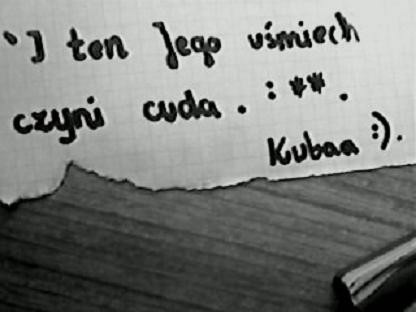 `I ten Jego uśmiech
czyni cuda . : ** .
Kubaa :).